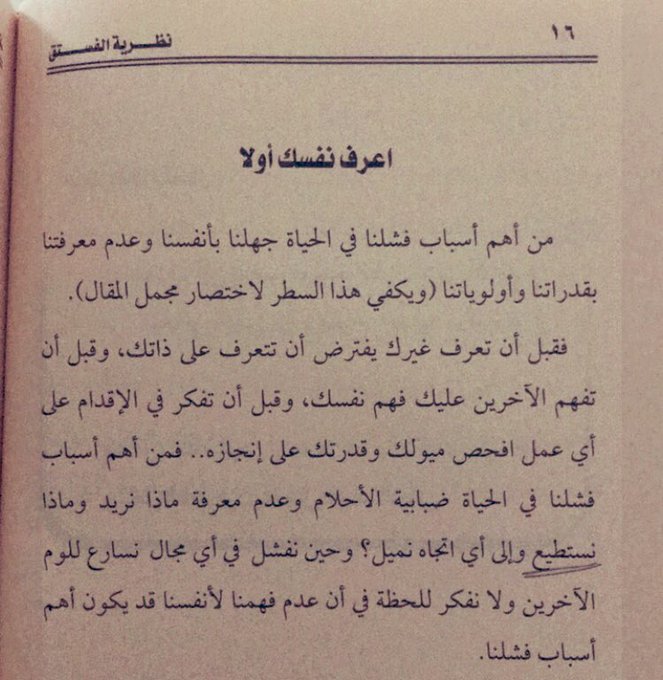 ١٦
نظرية الفستق
اعرف نفسك أولا
من أهم أسباب فشلنا في الحياة جهلنا بأنفسنا وعدم معرفتنا
بقدراتنا وأولوياتنا (ويكفي هذا السطر لاختصار مجمل المقال).
فقبل أن تعرف غيرك يفترض أن تتعرف على ذاتك، وقبل أن
تفهم الآخرين عليك فهم نفسك، وقبل أن تفكر في الإقدام على
أي عمل افحص ميولك وقدرتك على إنجازه.. فمن أهم أسباب
فشلنا في الحياة ضبابية الأحلام وعدم معرفة ماذا نريد وماذا
نستطيع وإلى أي اتجاه نميل؟ وحين نفشل في أي مجال نسارع للوم
الآخرين ولا نفكر للحظة في أن عدم فهمنا لأنفسنا قد يكون أهم
أسباب فشلنا.